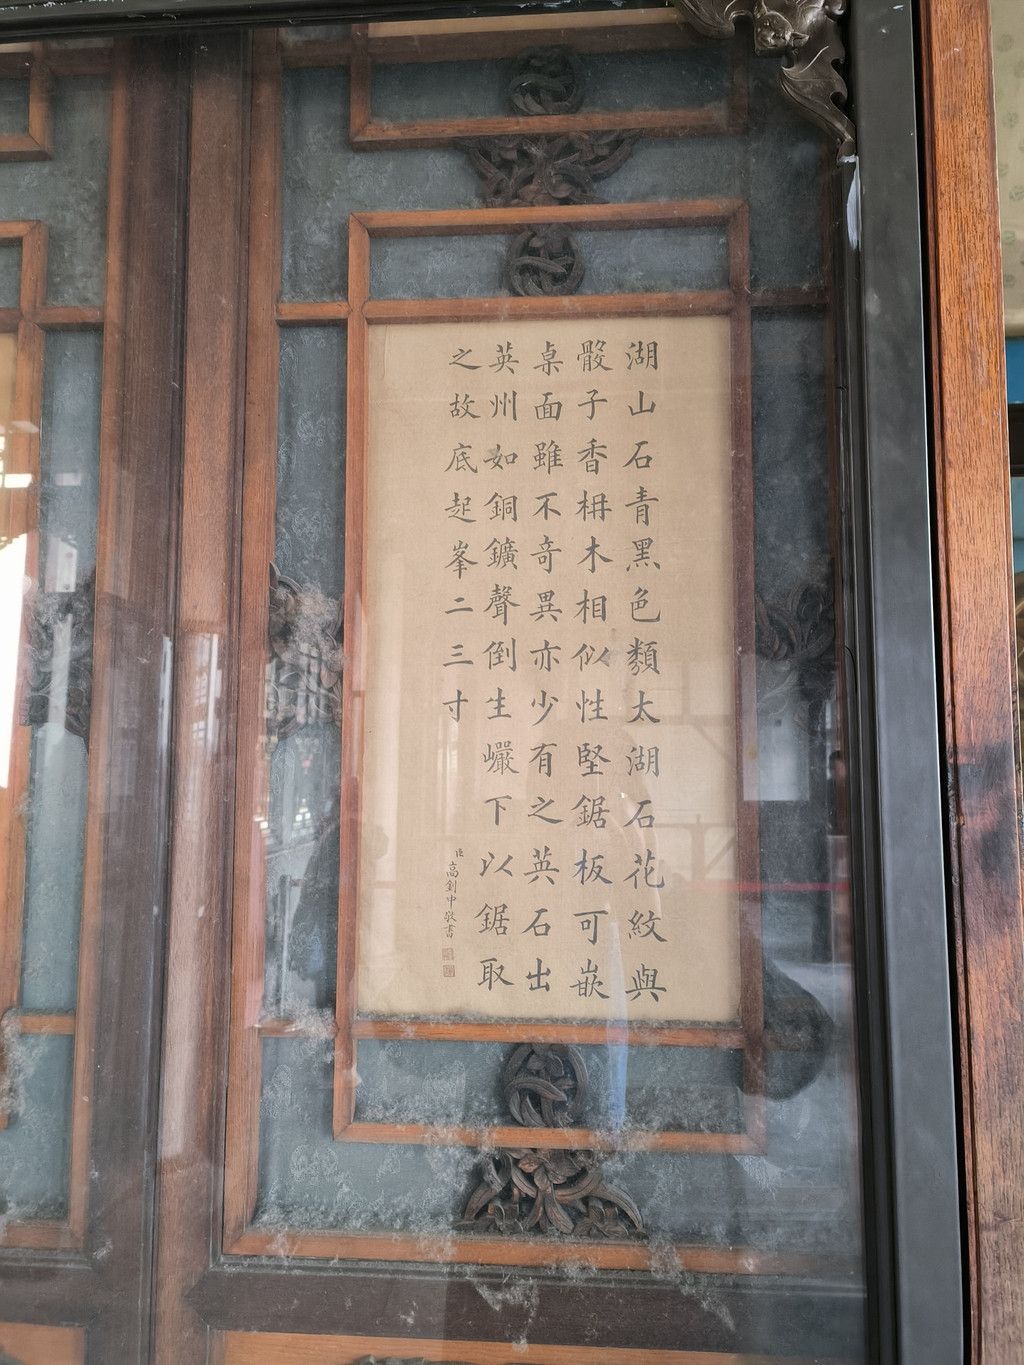 湖山石青黑色類太湖石花紋與
骰子香枏木相似性堅鋸板可嵌
桌面雖不奇異亦少有之英石出
英州如銅鑛聲倒生巗下以鋸取
之故底起峯二三寸
臣高釗中敬書